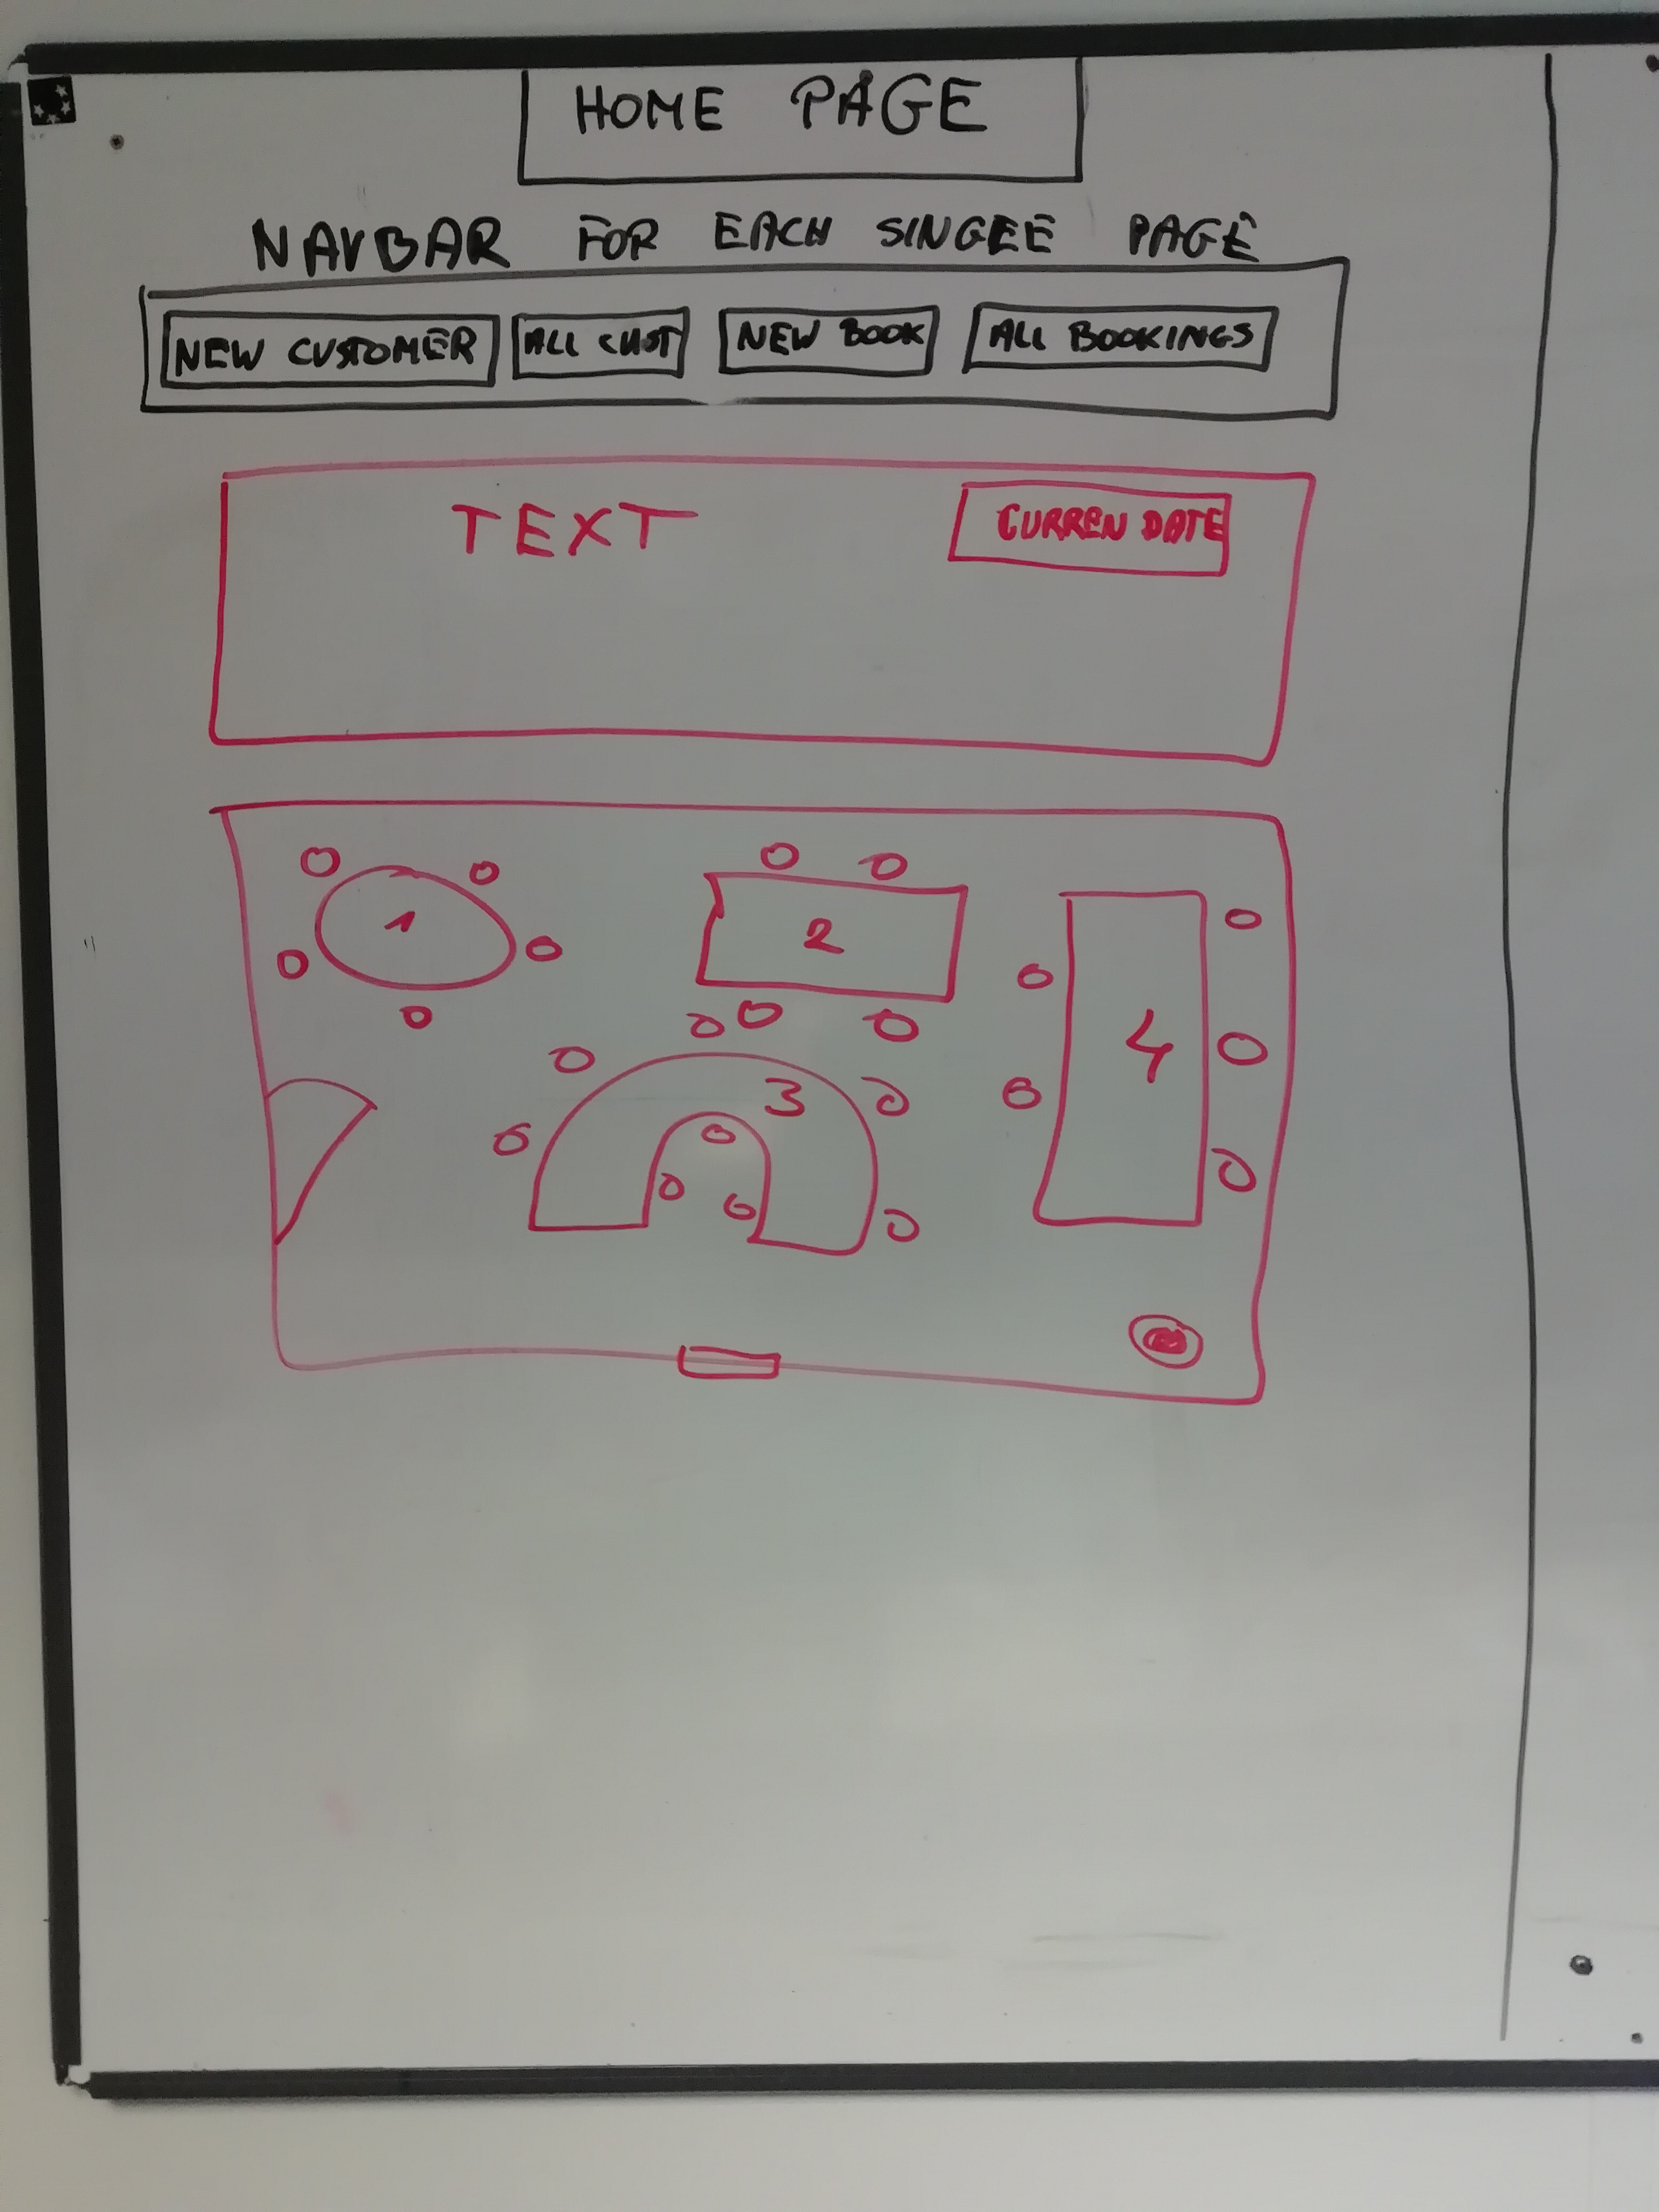 HOME PAGE
NAVBAR FOR EACH SINGEE PAGE
NEW CUSTOMER ALL CUST NEW BOOK ALL BOOKINGS
TEXT CURREN DATE
1
2
3
4